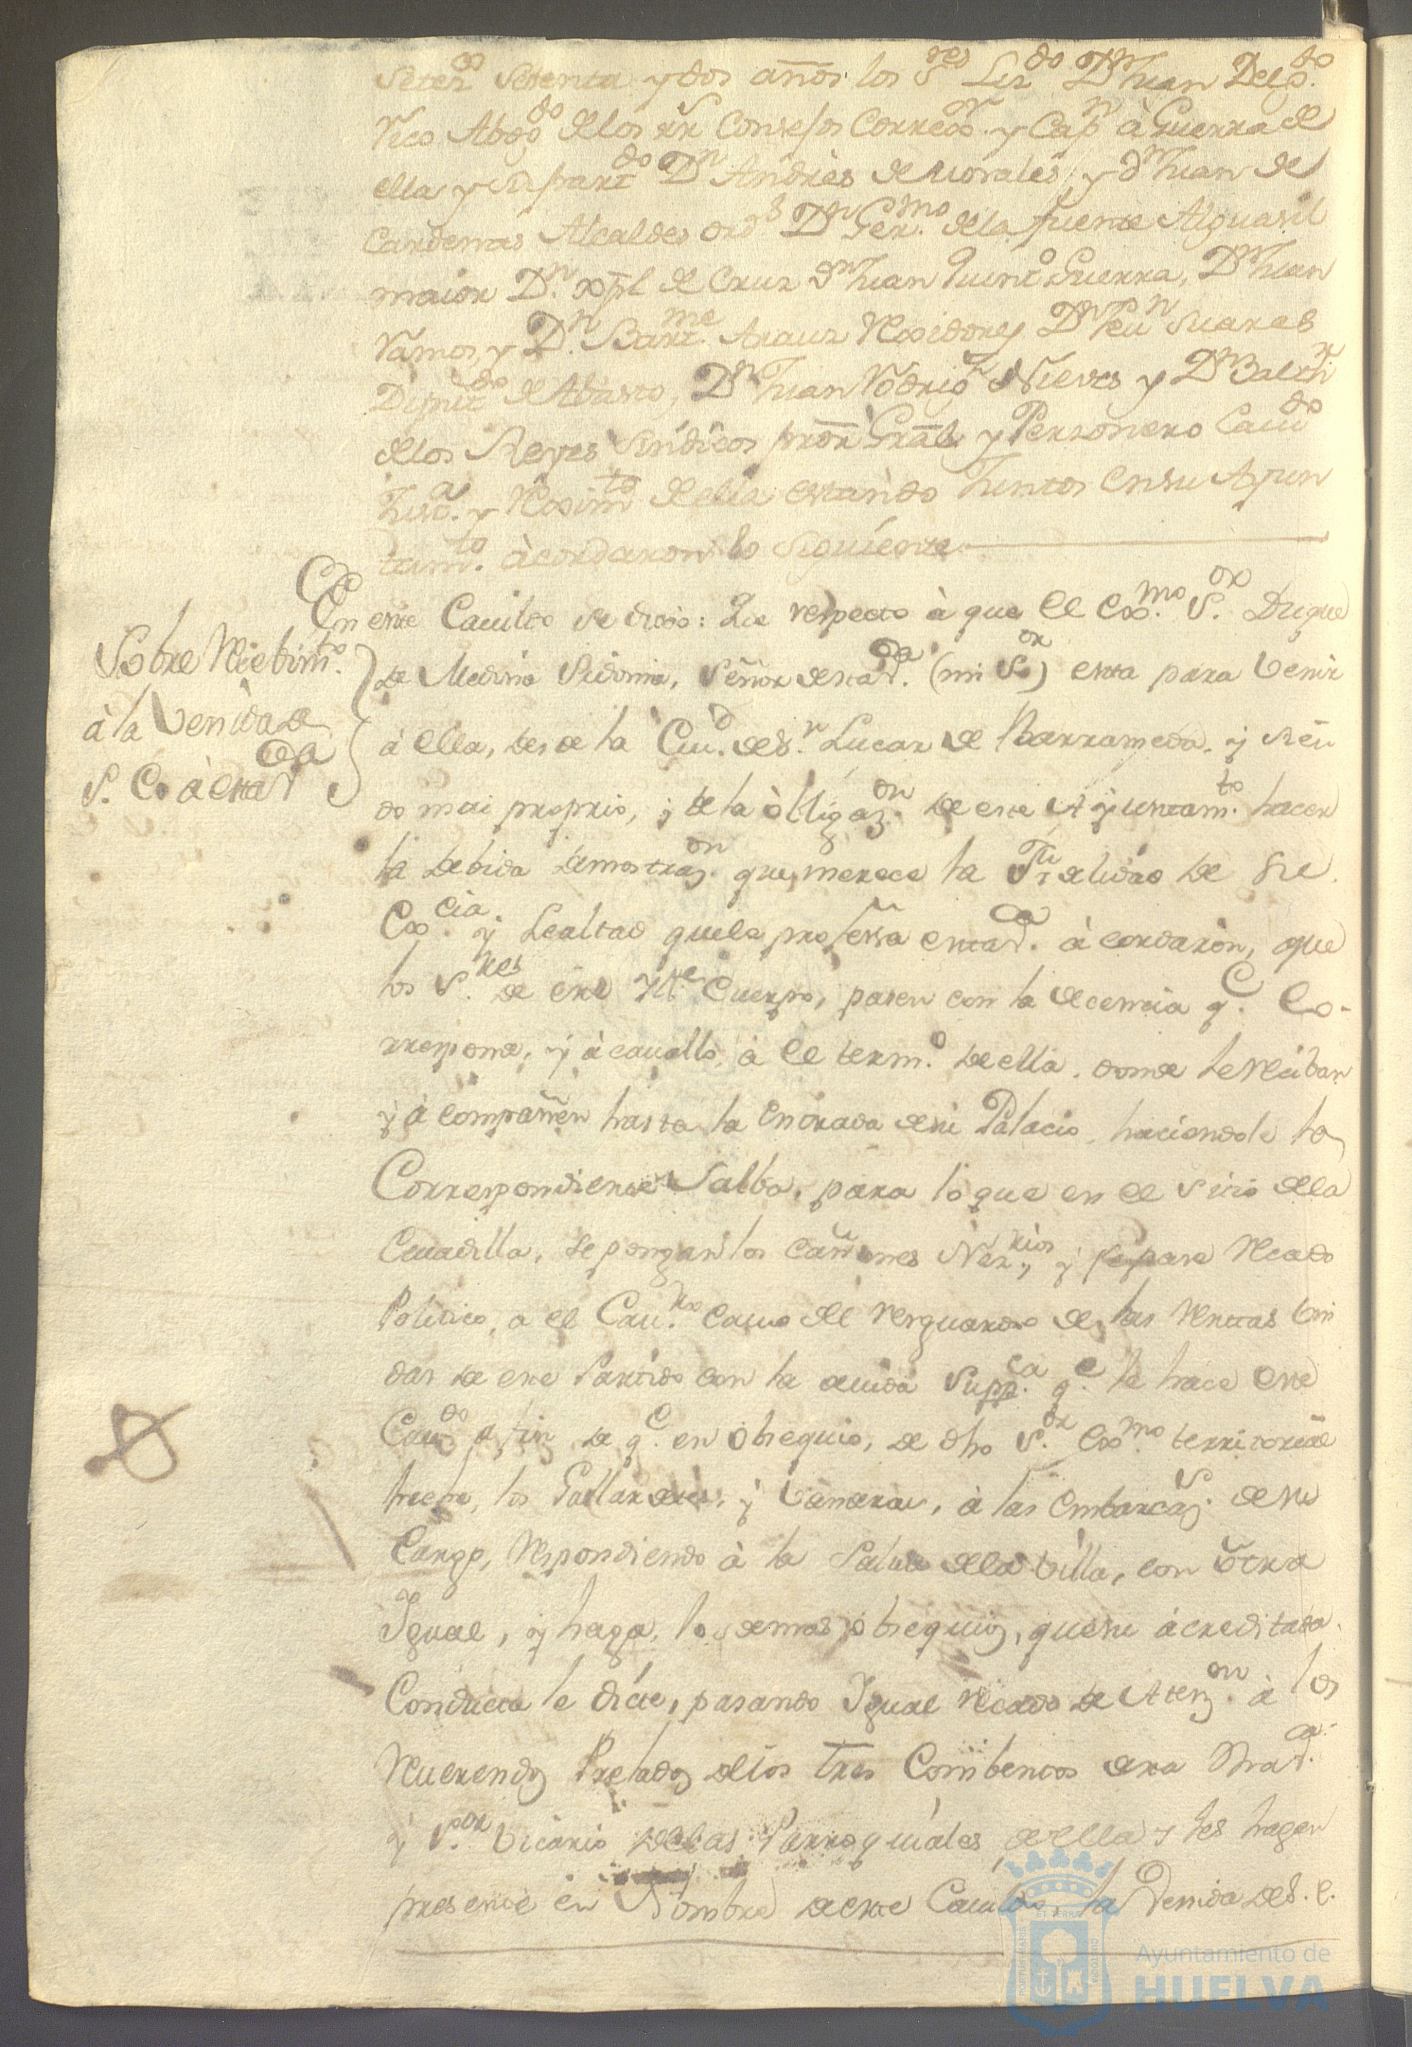 Setez.os Setenta y dos años los S.res Liz.do D.n Juan Delg.do
Rico Abog.do de los rr.s Consejos Correg.or y Cap.n à Guerra de
ella y su part.do D.n Andrès de Morales, y d.n Juan de
Cardenas Alcaldes ord.s D.n Ger.mo de la fuente Alguasil
maior D.n xpl de Cruz d.n Juan Quint.o Guerra, D.n Juan
Ramos, y D.n Bart.me Arauz Rexidores D.n Suares
Diput.do de Abasto, D.n Juan Rodrig.z Nieves y D.n Balth.r
de los Reyes Sindicos pror Gral y Personero Cau.do
Just.a y Rexim.to de ella estando Juntos en su Ayun
tam.to àcordaron lo siguiente
Sobre Recibim.to
à la Venida de
S. E. à esta V.a
En este Cauildo se dixo: Que respecto à que el Exc.mo S.or Duque
de Medina Sidonia, Señor de esta V.a (mi S.or) esta para Venir
à ella, desde la Ciu.d de S.n Lucar de Barrameda, y sien
do mui proprio, y de la òbligaz.on de este Ayuntam.to hacer
la debida demostraz.on que merece la de su
Ex.cia y Lealtad que le profesa esta V.a àcordaròn, que
los S.res de este Ill.e Cuerpo, pasen con la decencia q.e Co-
rresponde, y à cauallo, à el term.o de ella, donde le reciban
y àcompañen hasta la Entrada de su Palacio, haciendole la
Correspondiente Salba, para lo que en el Sitio de la
Calzadilla, se pongan los cañones Nez.rios, y se pase Recado
Politico, a el Cau.ro Cauo del resguardo de las Rentas Uni
das de este Partido con la deuida Supp.ca q.e le hace este
Cau.do a fin de q.e en Obsequio, de dho S.or Exc.mo territorial
los Gallardetes, y Vanderas, à las embarcaz.s de su
Cargo, respondiendo à la Salua de la Villa, con òtra
Igual, y haga, los demas obsequios, que su àcreditada
Conducta le dicte, pasando Igual recado de Atenz.on à los
Reuerendos Prelados de los tres Combentos de esta V.a
y S.or Vicario de las Parroquiales de ella y les hagan
presente en Nombre de este Cauildo, la Venida de S. E.
Ayuntamiento de
HUELVA